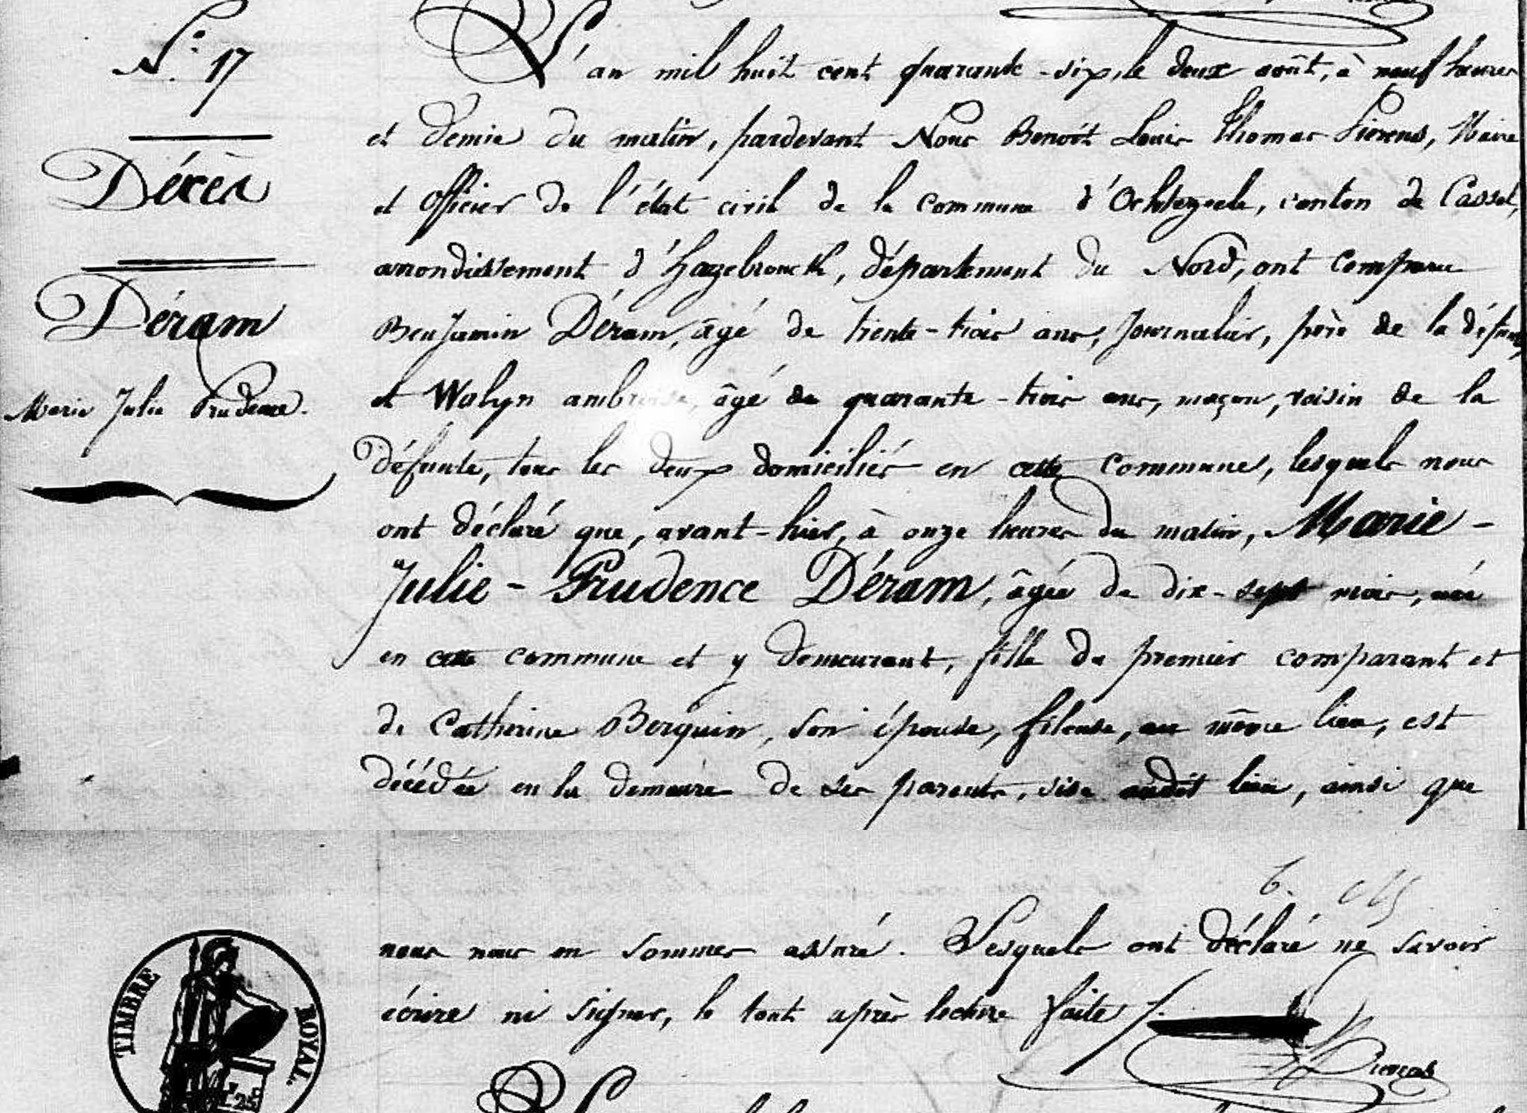 N.° 17
Décès
Déram
Marie Julie Prudence.
L'an mil huit cent quarante-six, le deux août, à neuf heures
et demie du matin, pardevant Nous Benoît Louis Thomas Pierens, Maire
et Officier de l'état civil de la commune d'Ochtezeele, canton de Cassel,
arrondissement d'Hazebrouck, département du Nord, ont comparu
Benjamin Déram, âgé de trente-trois ans, Journalier, père de la défunte
et Walyn ambroise, âgé de quarante-trois ans, maçon, voisin de la
défunte, tous les deux domiciliés en cette commune, lesquels nous
ont déclaré que, avant-hier, à onze heures du matin, Marie-
Julie-Prudence Déram, âgée de dix-sept mois, née
en cette commune et y demeurant, fille du premier comparant et
de Catherine Berquin, son épouse, fileuse, au même lieu, est
décédée en la demeure de ses parents, sise audit lieu, ainsi que
nous nous en sommes assuré. Lesquels ont déclaré ne savoir
écrire ni signer, le tout après lecture faite /.
Pierens
TIMBRE ROYAL.